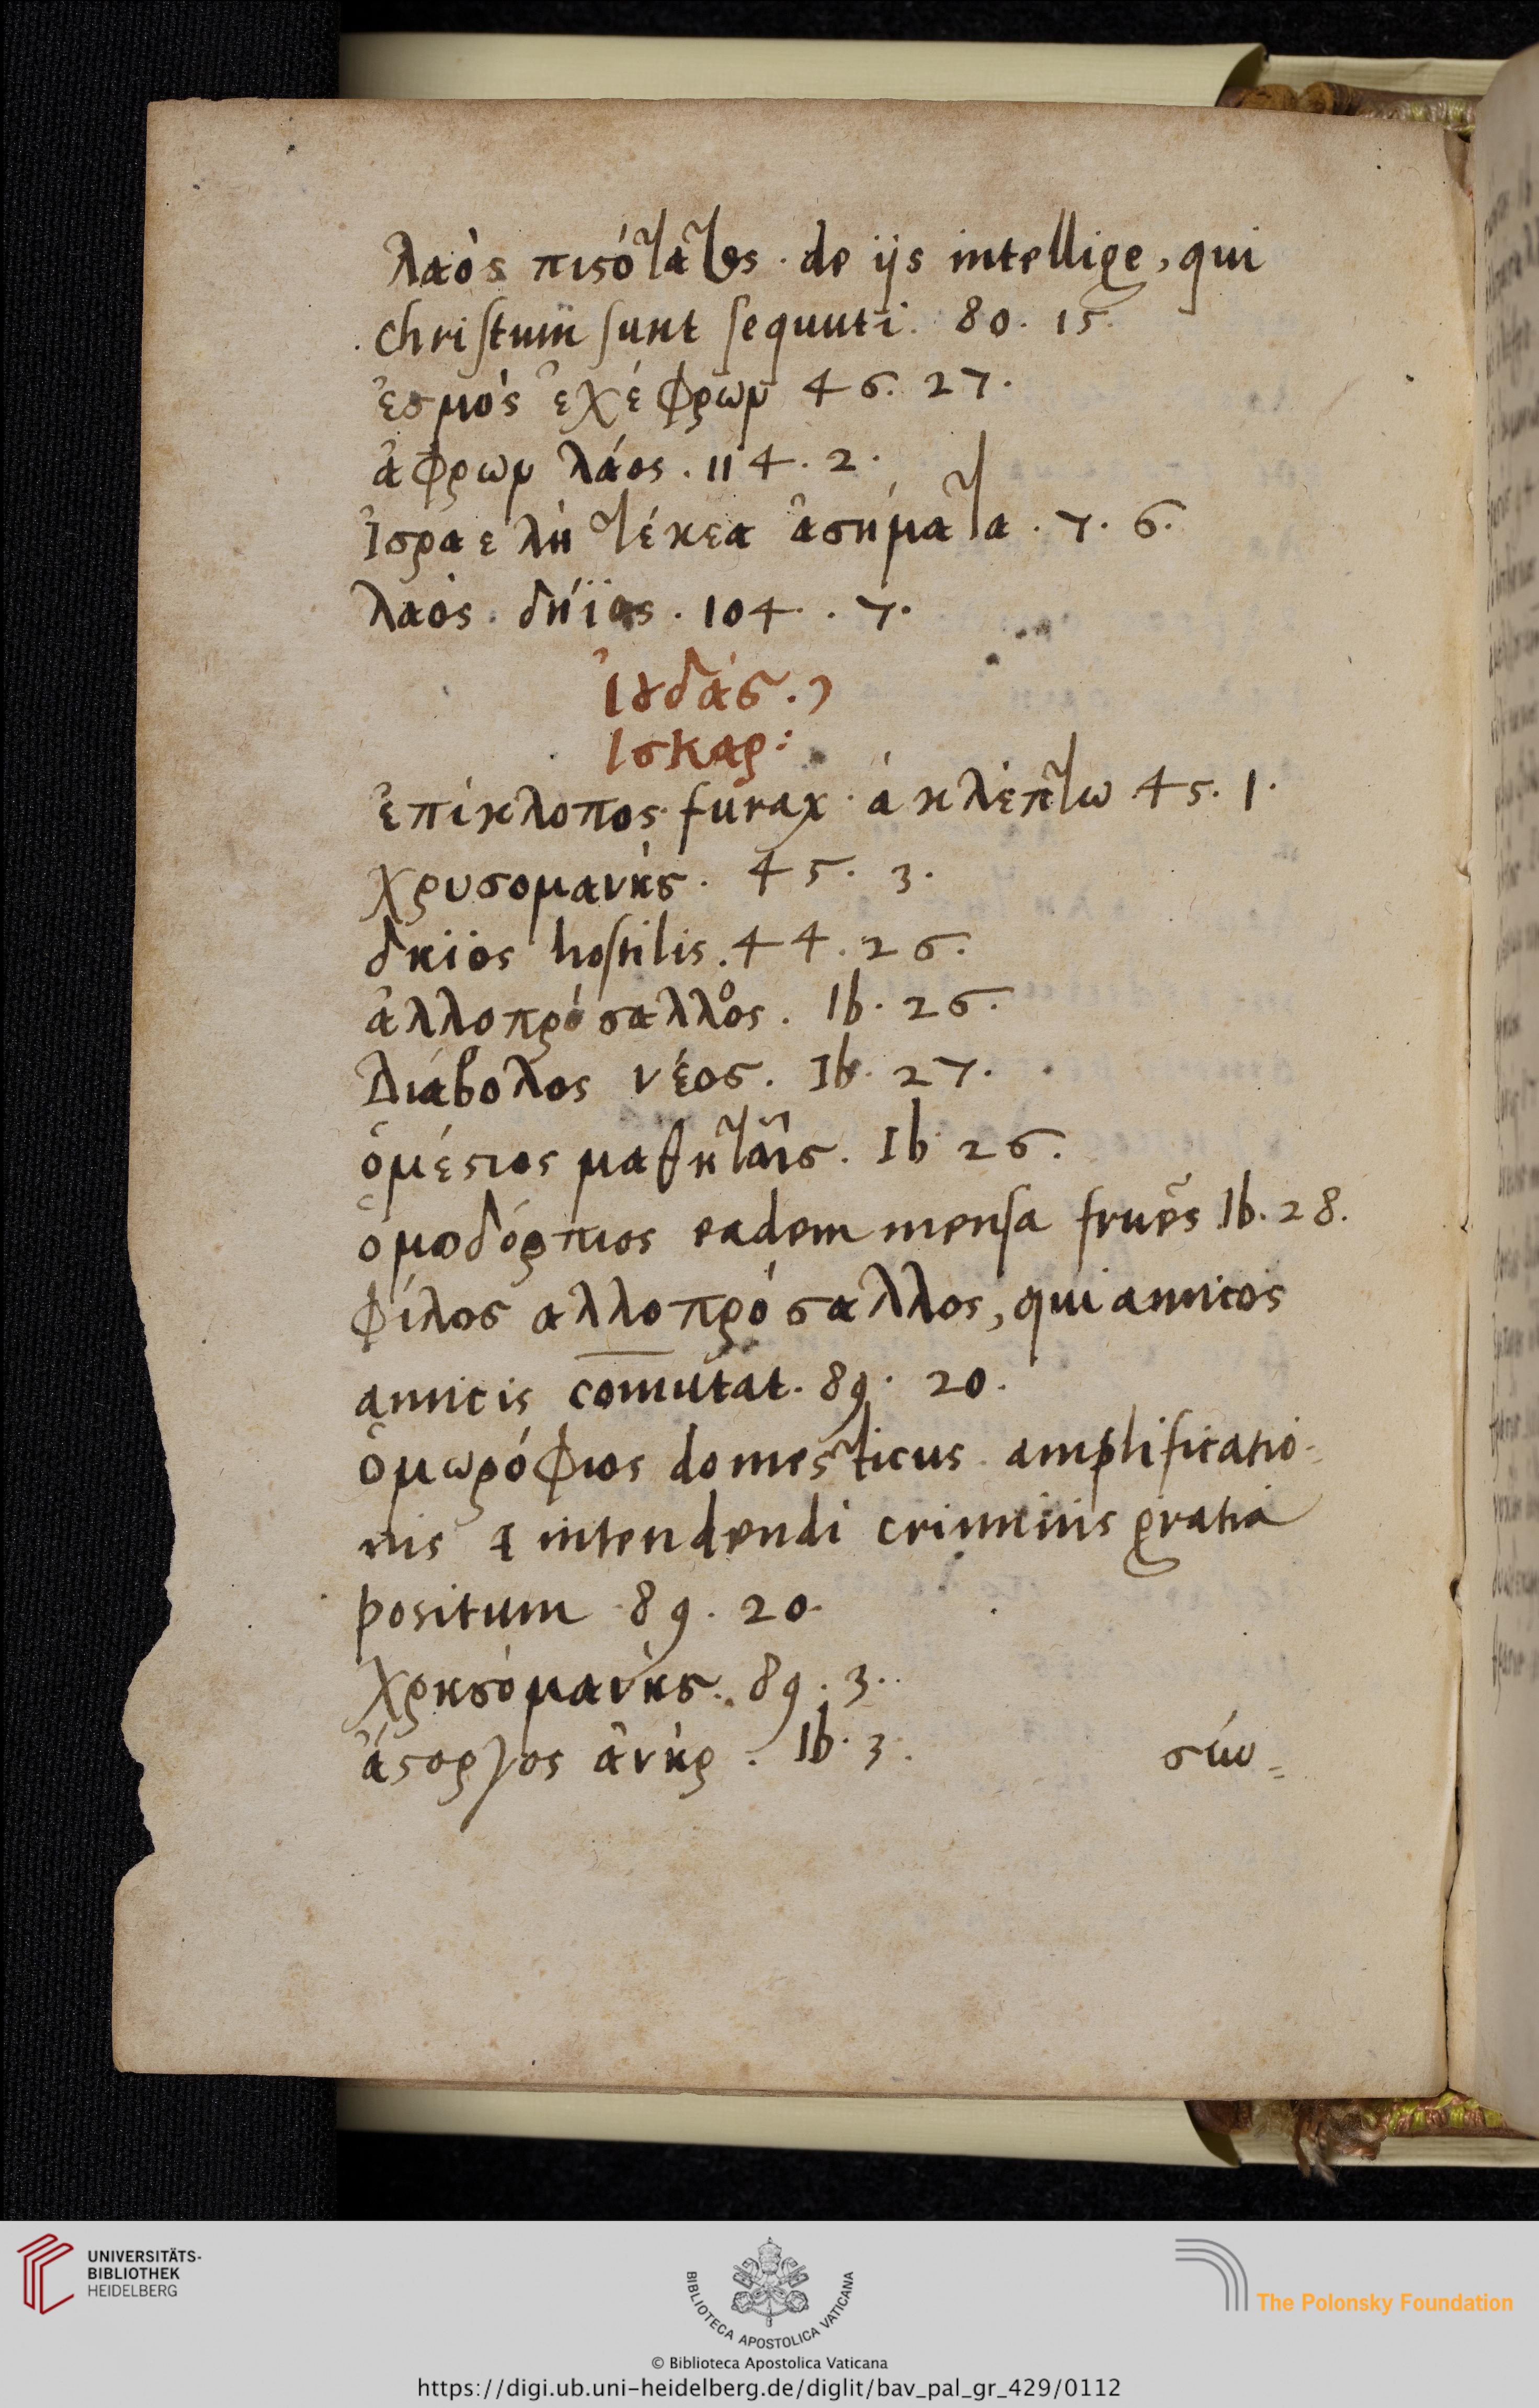 λαὸς πιϛότατος. de ijs intellige, qui
christum sunt sequuti. 80. 15.
ἑσμὸς ἐχέφρων 46. 27.
ἄφρων λάος. 114. 2.
Ἰσραελὴ τέκεα ἀσήματα. 7. 6.
λαὸς. δήϊος. 104. 7.
Ἰȣδάς.
Ισκαρ:
ἐπίκλοπος furax ά κλέπτω 45. 1.
χρυσομανὴς. 45. 3.
δηϊος hostilis. 44. 26.
ἀλλοπρόσαλλος. Ib. 26.
Διάβολος νέος. Ib. 27.
ὁμέϛιος μαθηταῖς. Ib 26.
ὁμοδόρπιος eadem mensa fruēs Ib. 28.
φίλος αλλοπρόσαλλος, qui amicos
amicis com̄utat. 89. 20.
ὁμωρόφιος domesticus amplificatio-
nis & intendendi criminis gratia
positum 89. 20.
χρησομανὴς. 89. 3.
ἄϛοργος ἀνὴρ. Ib. 3.
σύω=
UNIVERSITÄTS-
BIBLIOTHEK
HEIDELBERG
BIBLIOTECA APOSTOLICA VATICANA
The Polonsky Foundation
© Biblioteca Apostolica Vaticana
https://digi.ub.uni-heidelberg.de/diglit/bav_pal_gr_429/0112